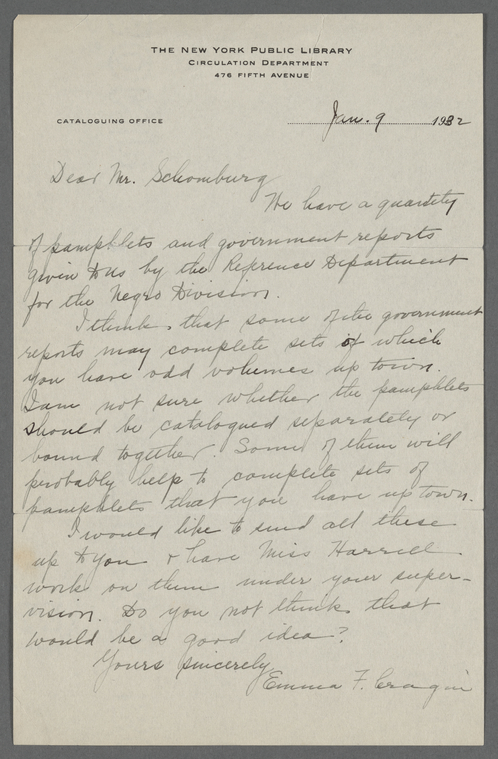 THE NEW YORK PUBLIC LIBRARY
CIRCULATION DEPARTMENT
476 FIFTH AVENUE
CATALOGUING OFFICE
Jan. 9 1932
Dear Mr. Schomburg
We have a quantity
of pamphlets and government reports
given to us by the Reference Department
for the Negro Division.
I think that some of the government
reports may complete sets of which
you have odd volumes up town.
I am not sure whether the pamphlets
should be catalogued separately or
bound together. Some of them will
probably help to complete sets of
pamphlets that you have up town.
I would like to send all these
up to you + have Miss Harrell
work on them under your super-
vision. Do you not think that
would be a good idea?
Yours sincerely,
Emma F. Cragin